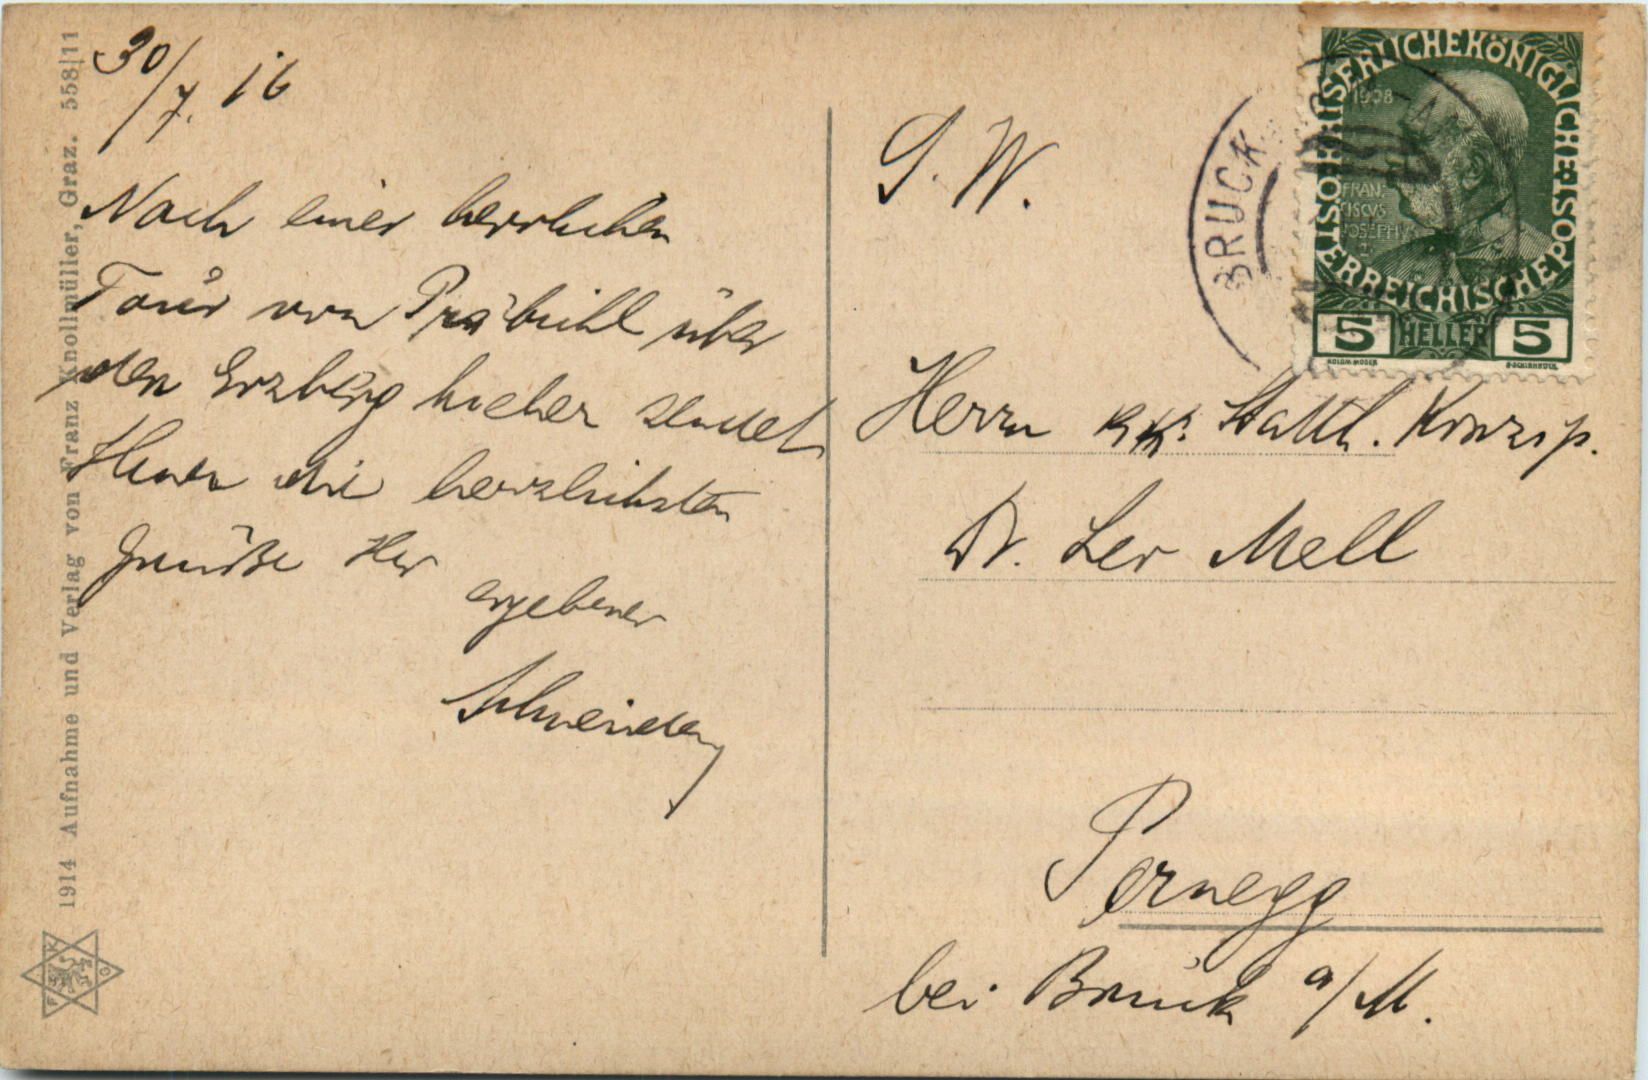 30/7. 16
Nach einer herrlichen
Tour von Präbichl über
den Erzberg hieher sendet
Ihnen die herzlichsten
Grüße Ihr
ergebener
S. W.
Herrn k.k. Statth. Konzip.
Dr. Leo Mell
Pernegg
bei Bruck a/M.
1914 Aufnahme und Verlag von Franz Knollmüller, Graz. 558|11
BRUCK
KAISERLICHE KÖNIGLICHE
ÖSTERREICHISCHE POST
1908
FRAN
CISCVS
JOSEPHVS
I.
5 HELLER 5
KOLOM. MOSER
F. SCHIRNBÖCK